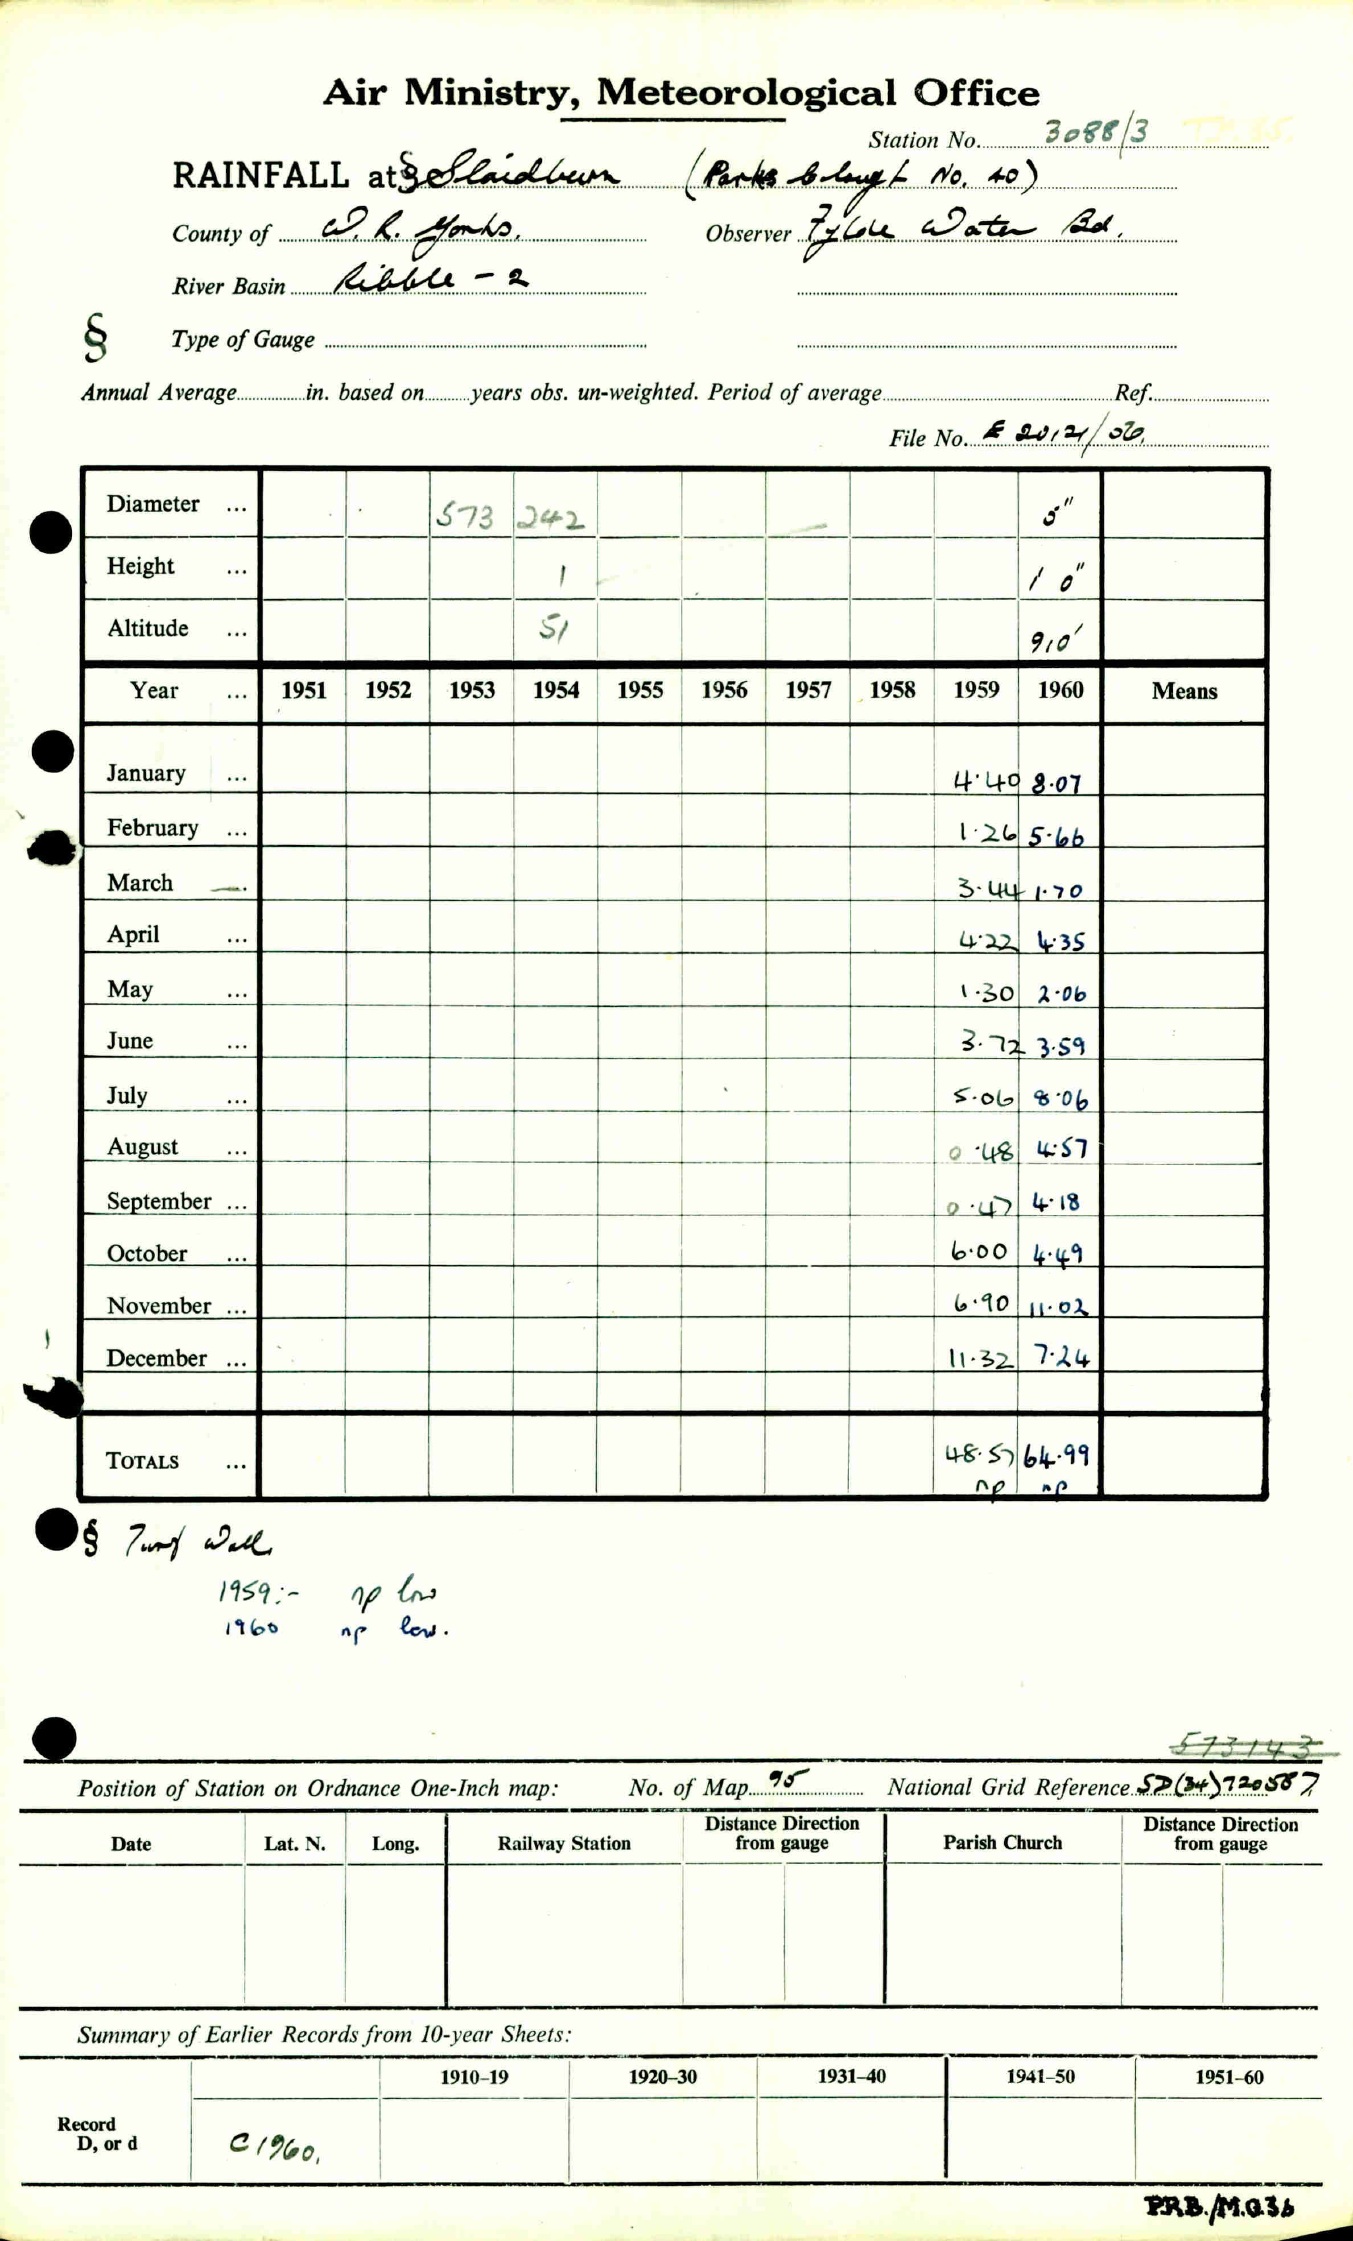 Air Ministry, Meteorological Office
Station No. 3088/3
RAINFALL at § Slaidburn (Parks Clough No. 40)
County of W. R. Yorks. Observer Fylde Water Bd.
River Basin Ribble - 2
§ Type of Gauge
Annual Average in. based on years obs. un-weighted. Period of average Ref.
File No.
Diameter ... 573 242 5"
Height ... 1 1' 0"
Altitude ... 51 910'
Year ... 1951 1952 1953 1954 1955 1956 1957 1958 1959 1960 Means
January ... 4.40 8.07
February ... 1.26 5.66
March ... 3.44 1.70
April ... 4.22 4.35
May ... 1.30 2.06
June ... 3.72 3.59
July ... 5.06 8.06
August ... 0.48 4.57
September ... 0.47 4.18
October ... 6.00 4.49
November ... 6.90 11.02
December ... 11.32 7.24
TOTALS ... 48.57 64.99
np np
§ Turf Wall
1959:- np low
1960 np low.
573143
Position of Station on Ordnance One-Inch map: No. of Map 95 National Grid Reference SD(34)720587
Date Lat. N. Long. Railway Station Distance Direction from gauge Parish Church Distance Direction from gauge
Summary of Earlier Records from 10-year Sheets:
1910–19 1920–30 1931–40 1941–50 1951–60
Record
D, or d C1960.
P.R.B./M.O.36